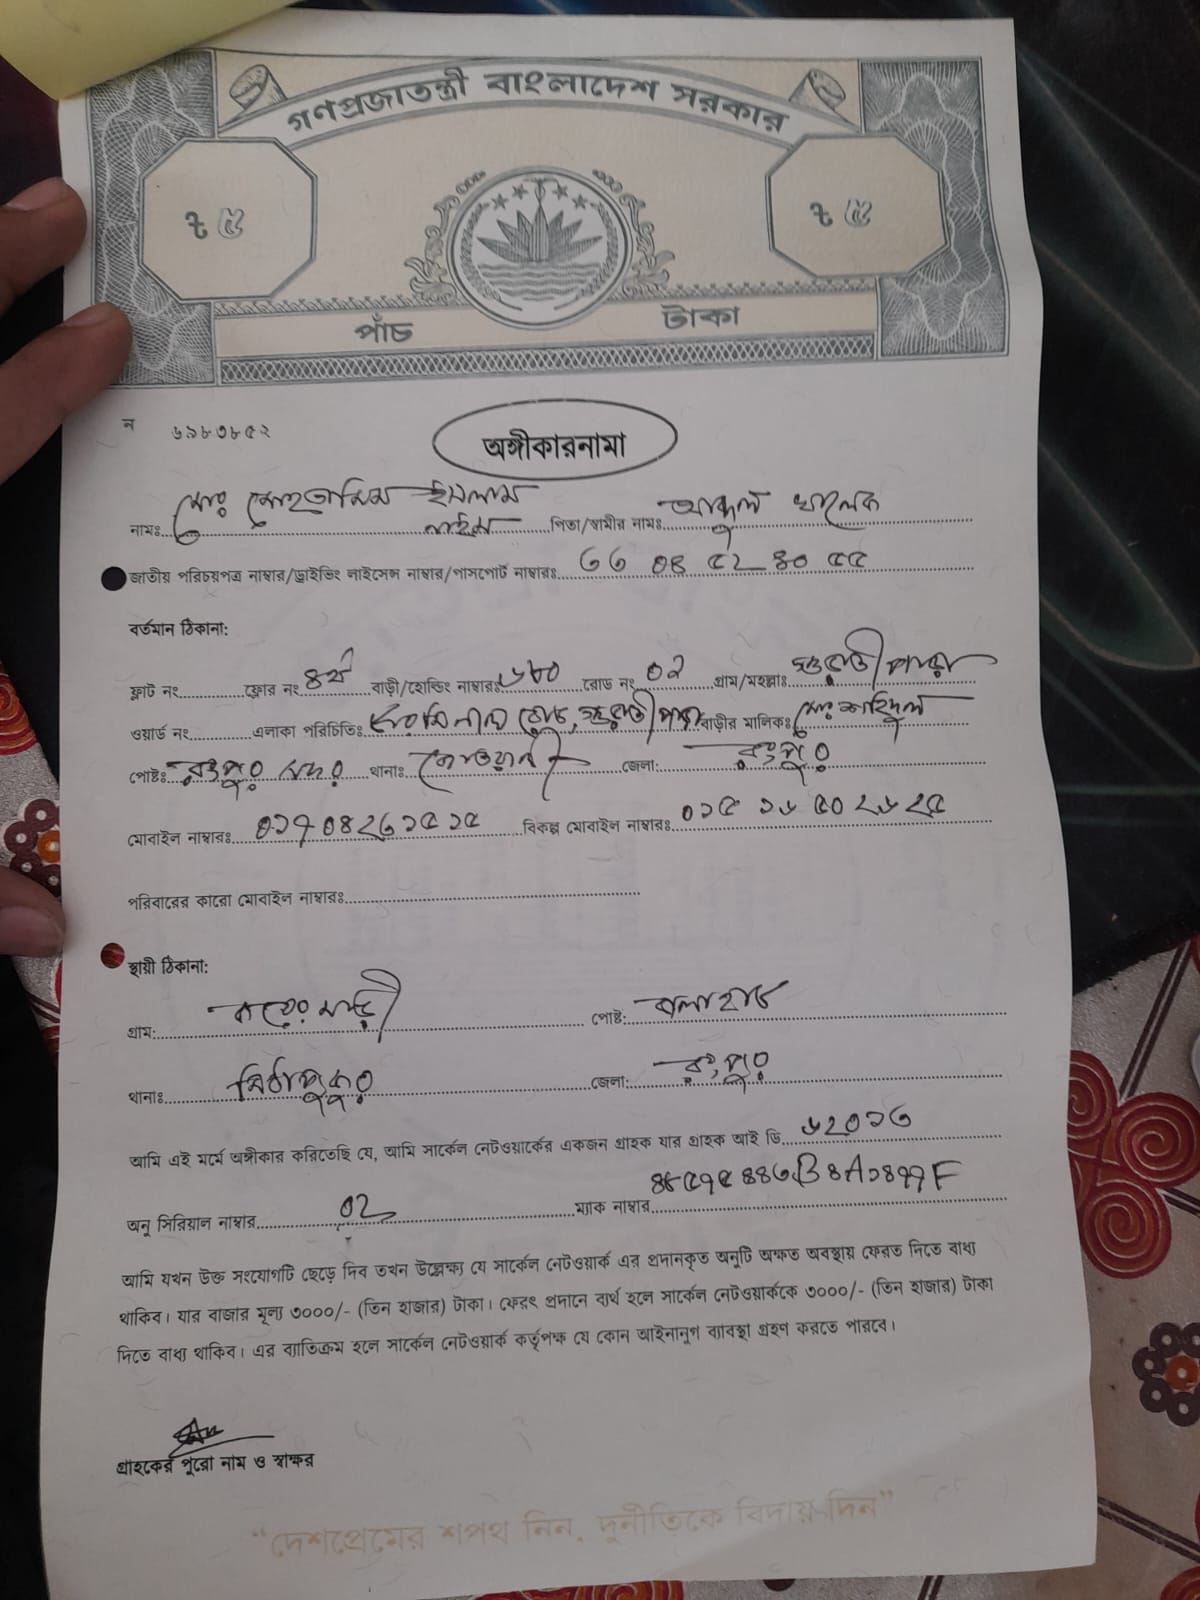 গণপ্রজাতন্ত্রী বাংলাদেশ সরকার
৳ ৫ ৳ ৫
পাঁচ টাকা
ন ৬৯৮৩৮৫২
অঙ্গীকারনামা
নামঃ মোঃ মোহতামিম ইসলাম নাইম পিতা/স্বামীর নামঃ আব্দুল খালেক
জাতীয় পরিচয়পত্র নাম্বার/ড্রাইভিং লাইসেন্স নাম্বার/পাসপোর্ট নাম্বারঃ
বর্তমান ঠিকানা:
ফ্লাট নং ফ্লোর নং ৪র্থ বাড়ী/হোল্ডিং নাম্বারঃ রোড নং ০২ গ্রাম/মহল্লাঃ
ওয়ার্ড নং এলাকা পরিচিতিঃ বাড়ীর মালিকঃ মোঃ শাহিদুল
পোষ্টঃ রংপুর সদর থানাঃ কোতয়ালী জেলা: রংপুর
মোবাইল নাম্বারঃ ০১৭০৪২৬১৫১৫ বিকল্প মোবাইল নাম্বারঃ ০১৫১৬৫০২৬২৫
পরিবারের কারো মোবাইল নাম্বারঃ
স্থায়ী ঠিকানা:
গ্রাম: পোষ্ট: বালারহাট
থানাঃ মিঠাপুকুর জেলা: রংপুর
আমি এই মর্মে অঙ্গীকার করিতেছি যে, আমি সার্কেল নেটওয়ার্কের একজন গ্রাহক যার গ্রাহক আই ডি
অনু সিরিয়াল নাম্বার ০২ ম্যাক নাম্বার
আমি যখন উক্ত সংযোগটি ছেড়ে দিব তখন উল্লেক্ষ্য যে সার্কেল নেটওয়ার্ক এর প্রদানকৃত অনুটি অক্ষত অবস্থায় ফেরত দিতে বাধ্য
থাকিব। যার বাজার মূল্য ৩০০০/- (তিন হাজার) টাকা। ফেরৎ প্রদানে ব্যর্থ হলে সার্কেল নেটওয়ার্ককে ৩০০০/- (তিন হাজার) টাকা
দিতে বাধ্য থাকিব। এর ব্যাতিক্রম হলে সার্কেল নেটওয়ার্ক কর্তৃপক্ষ যে কোন আইনানুগ ব্যাবস্থা গ্রহণ করতে পারবে।
গ্রাহকের পুরো নাম ও স্বাক্ষর
“দেশপ্রেমের শপথ নিন, দুর্নীতিকে বিদায় দিন”